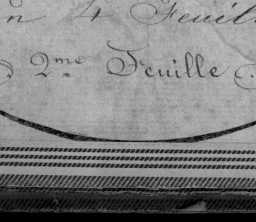 n 4 Feuill
2me Feuille